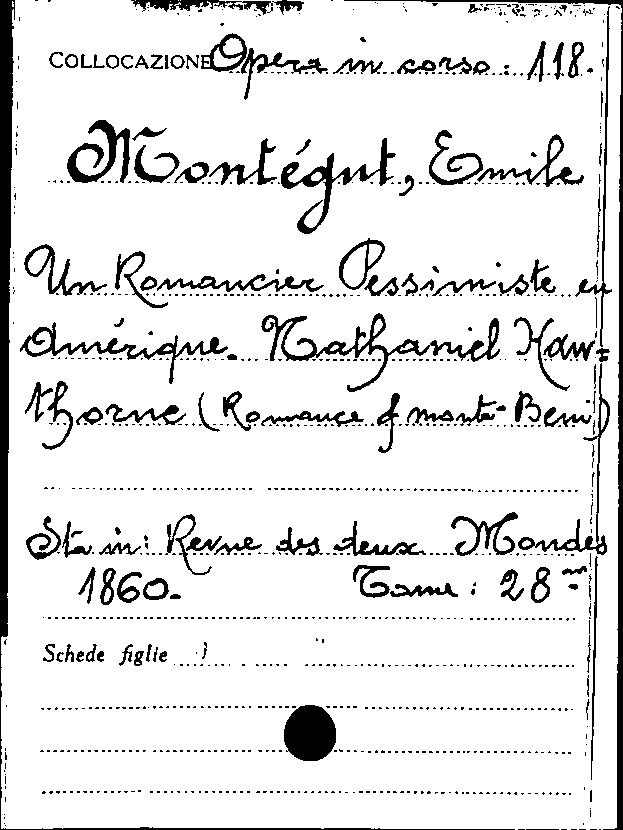 COLLOCAZIONE Opera in corso: 118.
Montégut, Emile
Un Romancier Pessimiste en
Amérique. Nathaniel Haw=
thorne (Romance of monte-Beni)
Sta in: Revue des deux Mondes
1860. Tome: 28me
Schede figlie